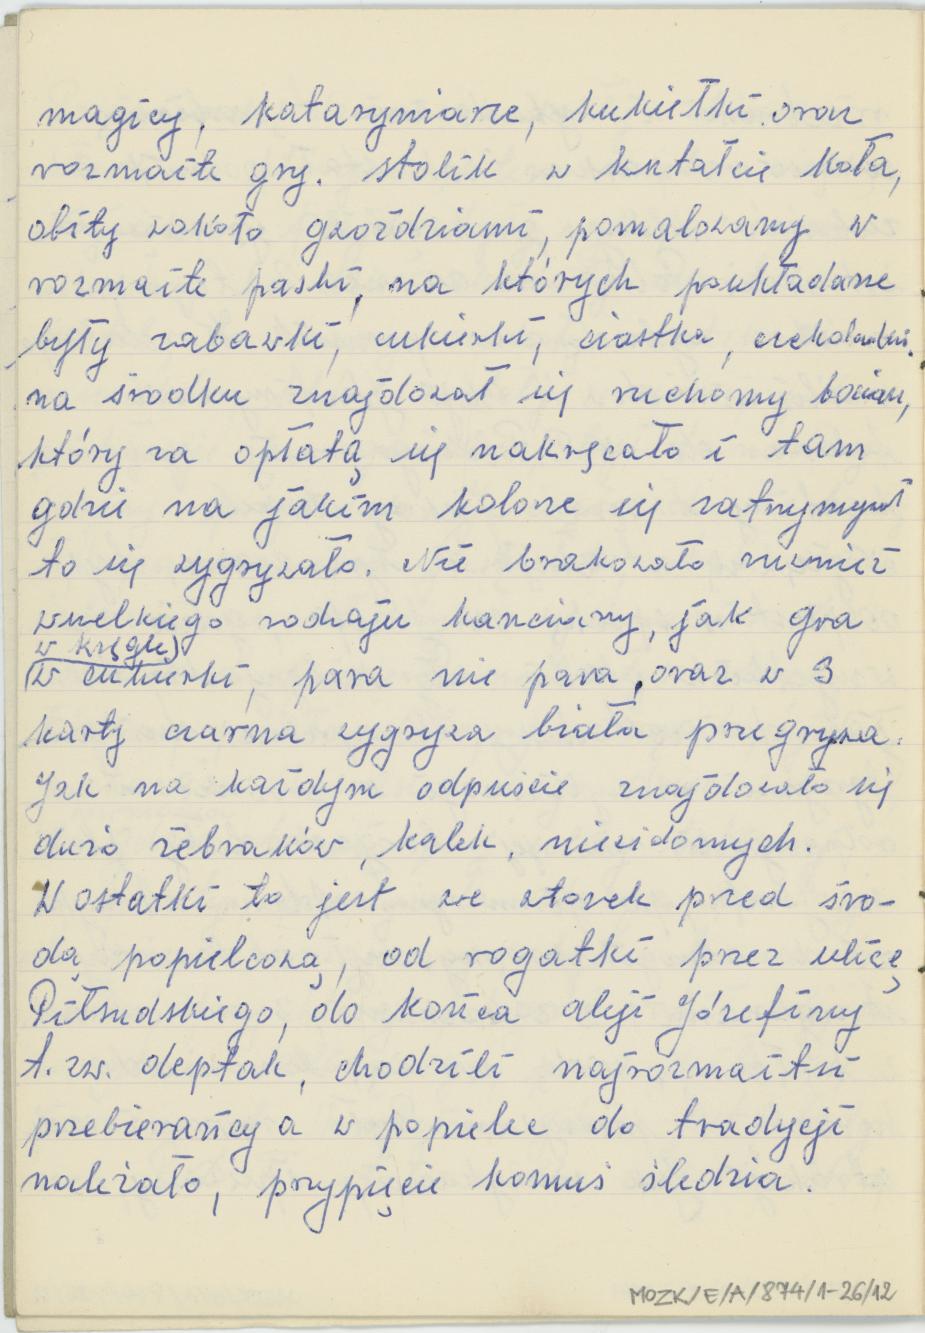 magicy, kataryniarze, kukiełki oraz
rozmaite gry. Stolik w kształcie koła,
obity wokoło gwoździami, pomalowany w
rozmaite paski, na których poukładane
były zabawki, cukierki, ciastka, czekoladki.
na środku znajdował się ruchomy bocian,
który za opłatą się nakręcało i tam
gdzie na jakim kolorze się zatrzymywał
to się wygrywało. Nie brakowało również
wszelkiego rodzaju kanciarzy, jak gra
w kręgle)
(w cukierki, para nie para, oraz w 3
karty czarna wygrywa biała przegrywa.
Jak na każdym odpuście znajdowało się
dużo żebraków, kalek, niewidomych.
W ostatki to jest we wtorek przed śro-
dą popielcową, od rogatki przez ulicę
Piłsudskiego, do końca aleji Józefiny
t.zw. deptak, chodzili najrozmaitsi
przebierańcy a w popielec do tradycji
należało, przypięcie komuś śledzia.
MOZK/E/A/874/1-26/12